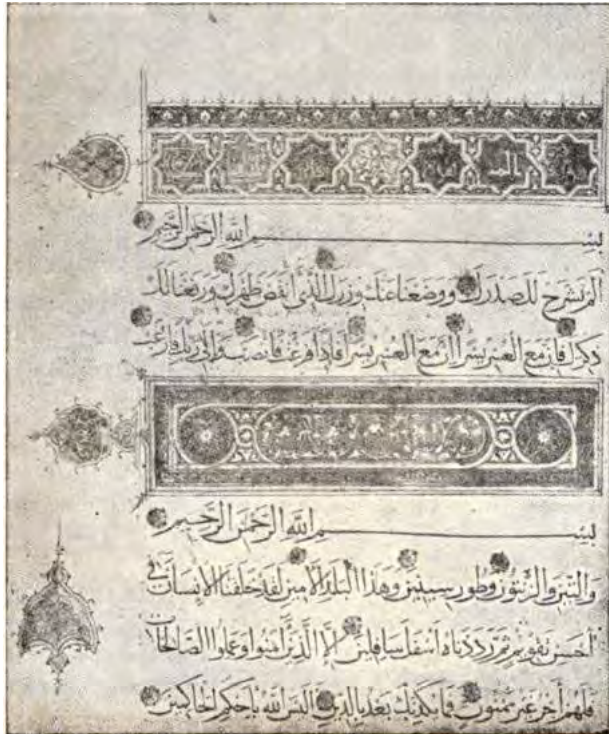 بسم الله الرحمن الرحيم
ألم نشرح لك صدرك ووضعنا عنك وزرك الذي أنقض ظهرك ورفعنا لك
ذكرك فإن مع العسر يسرا إن مع العسر يسرا فإذا فرغت فانصب وإلى ربك فارغب
بسم الله الرحمن الرحيم
والتين والزيتون وطور سينين وهذا البلد الأمين لقد خلقنا الإنسان في
أحسن تقويم ثم رددناه أسفل سافلين إلا الذين آمنوا وعملوا الصالحات
فلهم أجر غير ممنون فما يكذبك بعد بالدين أليس الله بأحكم الحاكمين